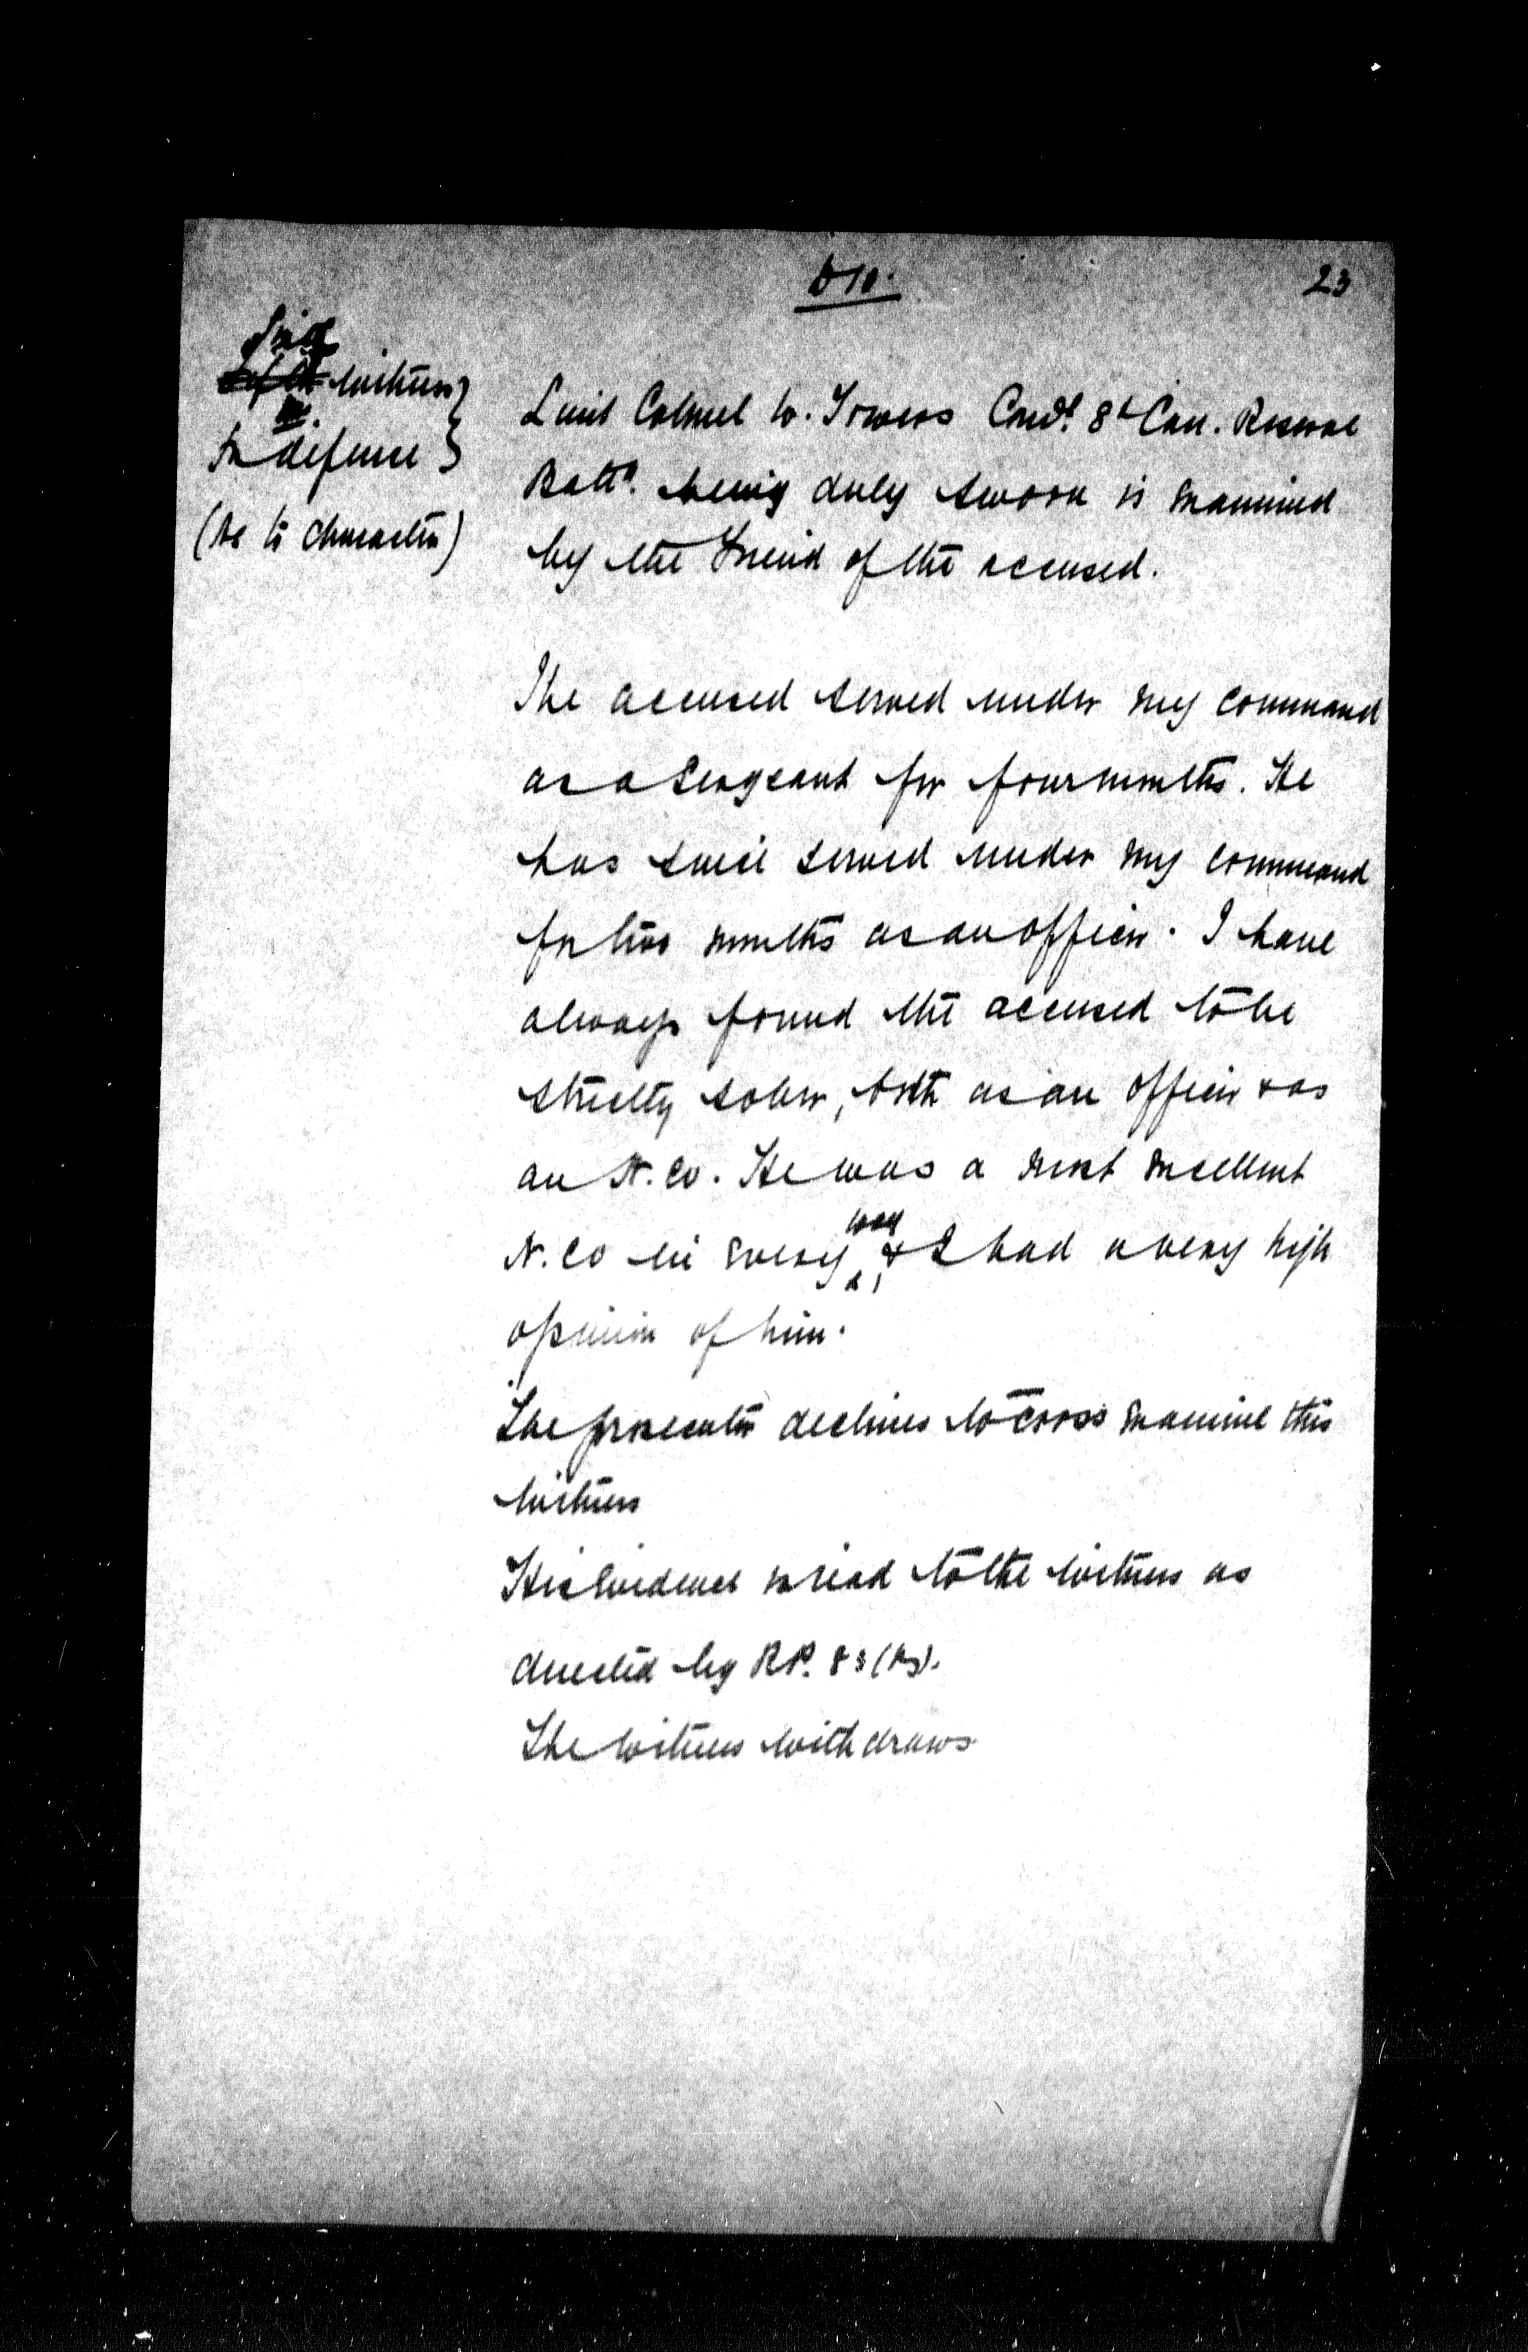 D10.
23
witness }
for defence }
(As to character)
Lieut Colonel W. Towers Comdt 8th Can. Reserve
Battn. being duly sworn is examined
by the friend of the accused.
The accused served under my command
as a Sergeant for four months. He
has since served under my command
for two months as an officer. I have
always found the accused to be
strictly sober, both as an officer & as
an N.CO. He was a most excellent
N.CO in every way, & I had a very high
opinion of him.
The prosecutor declines to cross examine this
witness
His evidence is read to the witness as
directed by R.P. 83 (B).
The witness withdraws